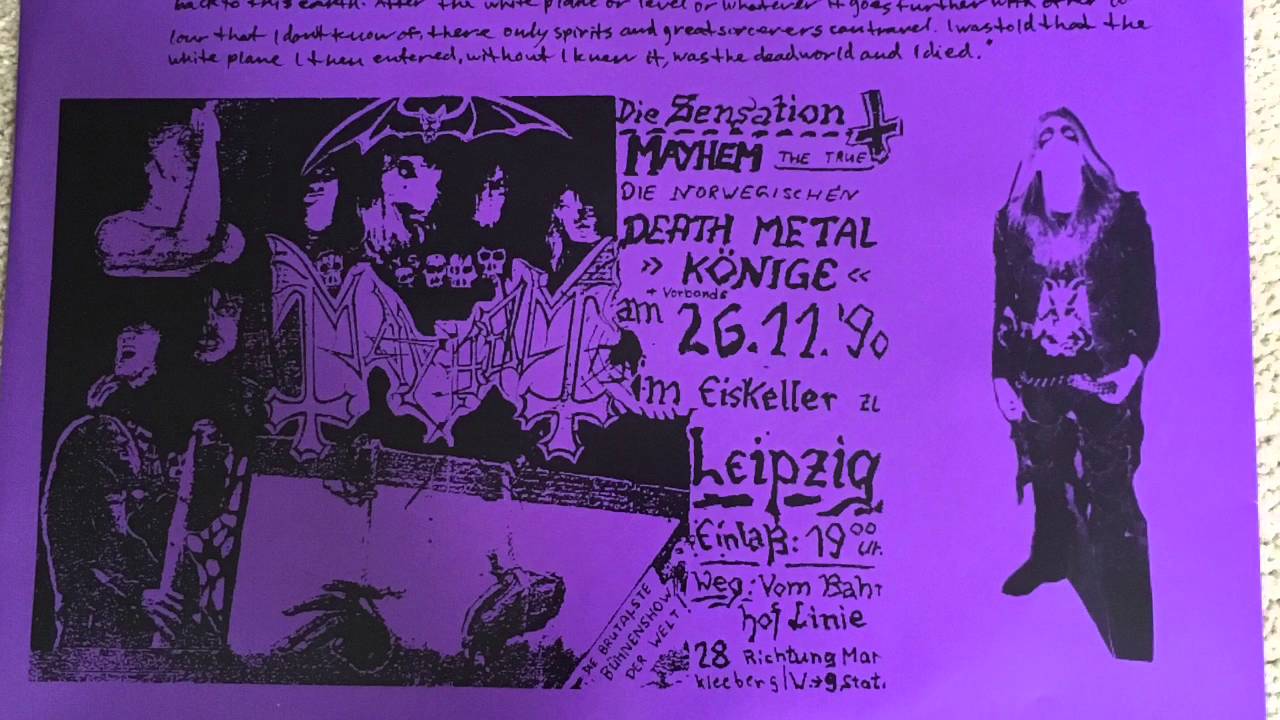 back to this earth. After the white plane or level or whatever it goes further with other co
lour that I dont know of, there only spirits and great sorcerers can travel. I was told that the
white plane I then entered, without I knew it, was the deadworld and I died."
Die Sensation
MAYHEM THE TRUE
DIE NORWEGISCHEN
DEATH METAL
» KÖNIGE «
+ Vorbands
am 26.11.'90
im Eiskeller ZL
Leipzig
Einlaß: 19 00 Uh.
Weg: Vom Bahn
hof Linie
28 Richtung Mar
kleeberg/W.
MAYHEM
DIE BRUTALSTE
BÜHNENSHOW
DER WELT!